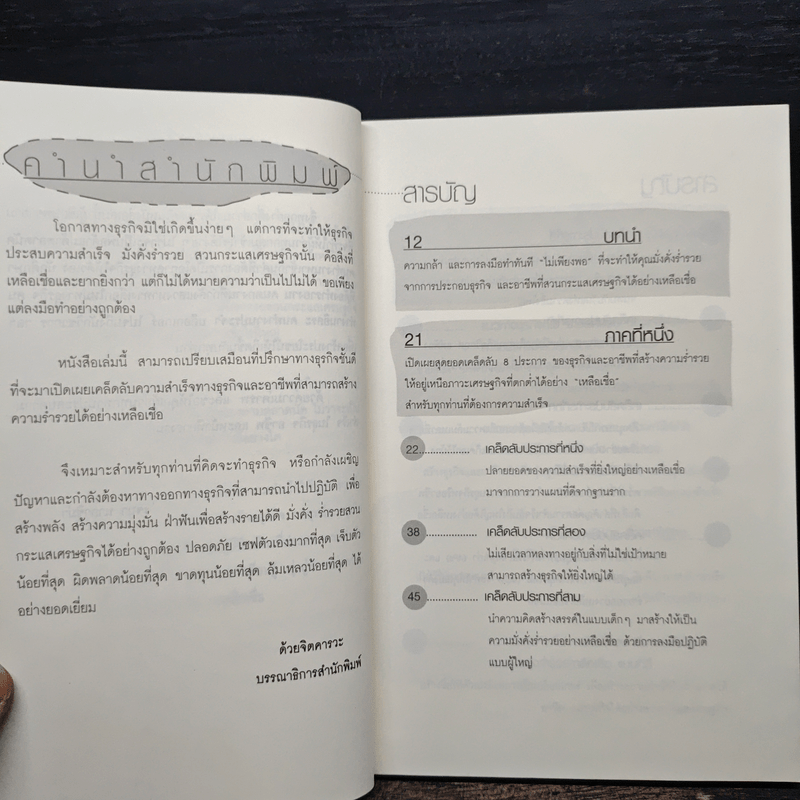 คำนำสำนักพิมพ์
โอกาสทางธุรกิจมิใช่เกิดขึ้นง่ายๆ แต่การที่จะทำให้ธุรกิจ
ประสบความสำเร็จ มั่งคั่งร่ำรวย สวนกระแสเศรษฐกิจนั้น คือสิ่งที่
เหลือเชื่อและยากยิ่งกว่า แต่ก็ไม่ได้หมายความว่าเป็นไปไม่ได้ ขอเพียง
แต่ลงมือทำอย่างถูกต้อง
หนังสือเล่มนี้ สามารถเปรียบเสมือนที่ปรึกษาทางธุรกิจชั้นดี
ที่จะมาเปิดเผยเคล็ดลับความสำเร็จทางธุรกิจและอาชีพที่สามารถสร้าง
ความร่ำรวยได้อย่างเหลือเชื่อ
จึงเหมาะสำหรับทุกท่านที่คิดจะทำธุรกิจ หรือกำลังเผชิญ
ปัญหาและกำลังต้องหาทางออกทางธุรกิจที่สามารถนำไปปฏิบัติ เพื่อ
สร้างพลัง สร้างความมุ่งมั่น ฝ่าฟันเพื่อสร้างรายได้ดี มั่งคั่ง ร่ำรวยสวน
กระแสเศรษฐกิจได้อย่างถูกต้อง ปลอดภัย เซฟตัวเองมากที่สุด เจ็บตัว
น้อยที่สุด ผิดพลาดน้อยที่สุด ขาดทุนน้อยที่สุด ล้มเหลวน้อยที่สุด ได้
อย่างยอดเยี่ยม
ด้วยจิตคารวะ
บรรณาธิการสำนักพิมพ์
สารบัญ
12 บทนำ
ความกล้า และการลงมือทำทันที "ไม่เพียงพอ" ที่จะทำให้คุณมั่งคั่งร่ำรวย
จากการประกอบธุรกิจ และอาชีพที่สวนกระแสเศรษฐกิจได้อย่างเหลือเชื่อ
21 ภาคที่หนึ่ง
เปิดเผยสุดยอดเคล็ดลับ 8 ประการ ของธุรกิจและอาชีพที่สร้างความร่ำรวย
ให้อยู่เหนือภาวะเศรษฐกิจที่ตกต่ำได้อย่าง "เหลือเชื่อ"
สำหรับทุกท่านที่ต้องการความสำเร็จ
22 .................. เคล็ดลับประการที่หนึ่ง
ปลายยอดของความสำเร็จที่ยิ่งใหญ่อย่างเหลือเชื่อ
มาจากการวางแผนที่ดีจากฐานราก
38 .................. เคล็ดลับประการที่สอง
ไม่เสียเวลาหลงทางอยู่กับสิ่งที่ไม่ใช่เป้าหมาย
สามารถสร้างธุรกิจให้ยิ่งใหญ่ได้
45 .................. เคล็ดลับประการที่สาม
นำความคิดสร้างสรรค์ในแบบเด็กๆ มาสร้างให้เป็น
ความมั่งคั่งร่ำรวยอย่างเหลือเชื่อ ด้วยการลงมือปฏิบัติ
แบบผู้ใหญ่